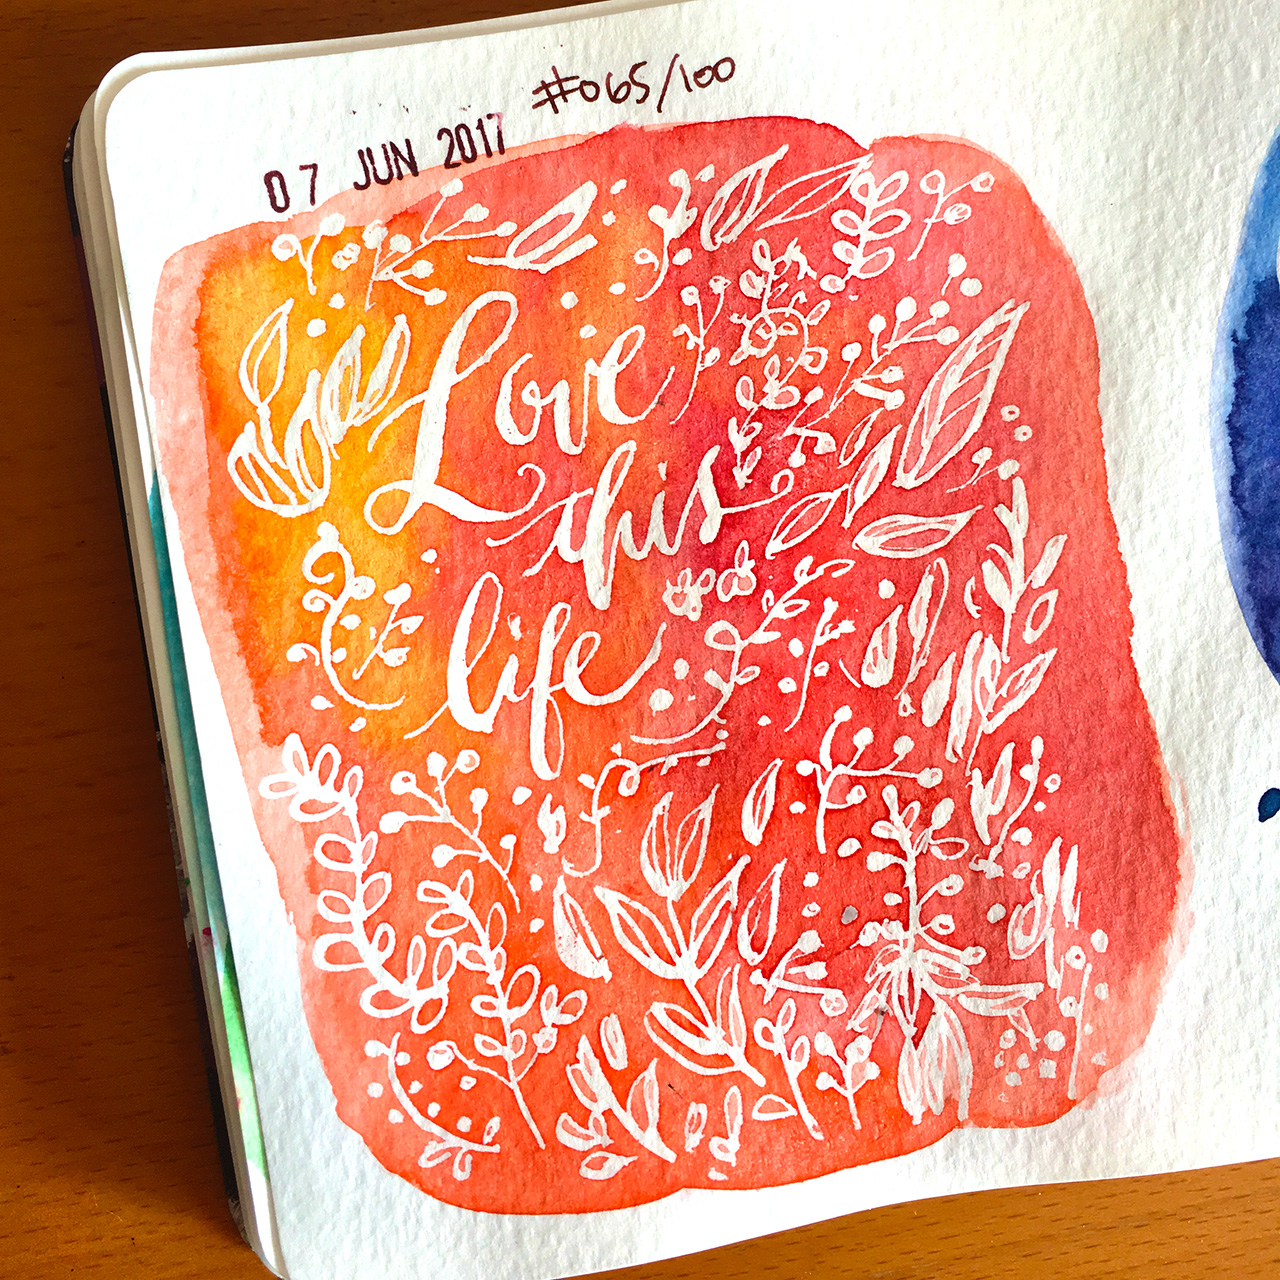 #065/100
07 JUN 2017
Love
this
life